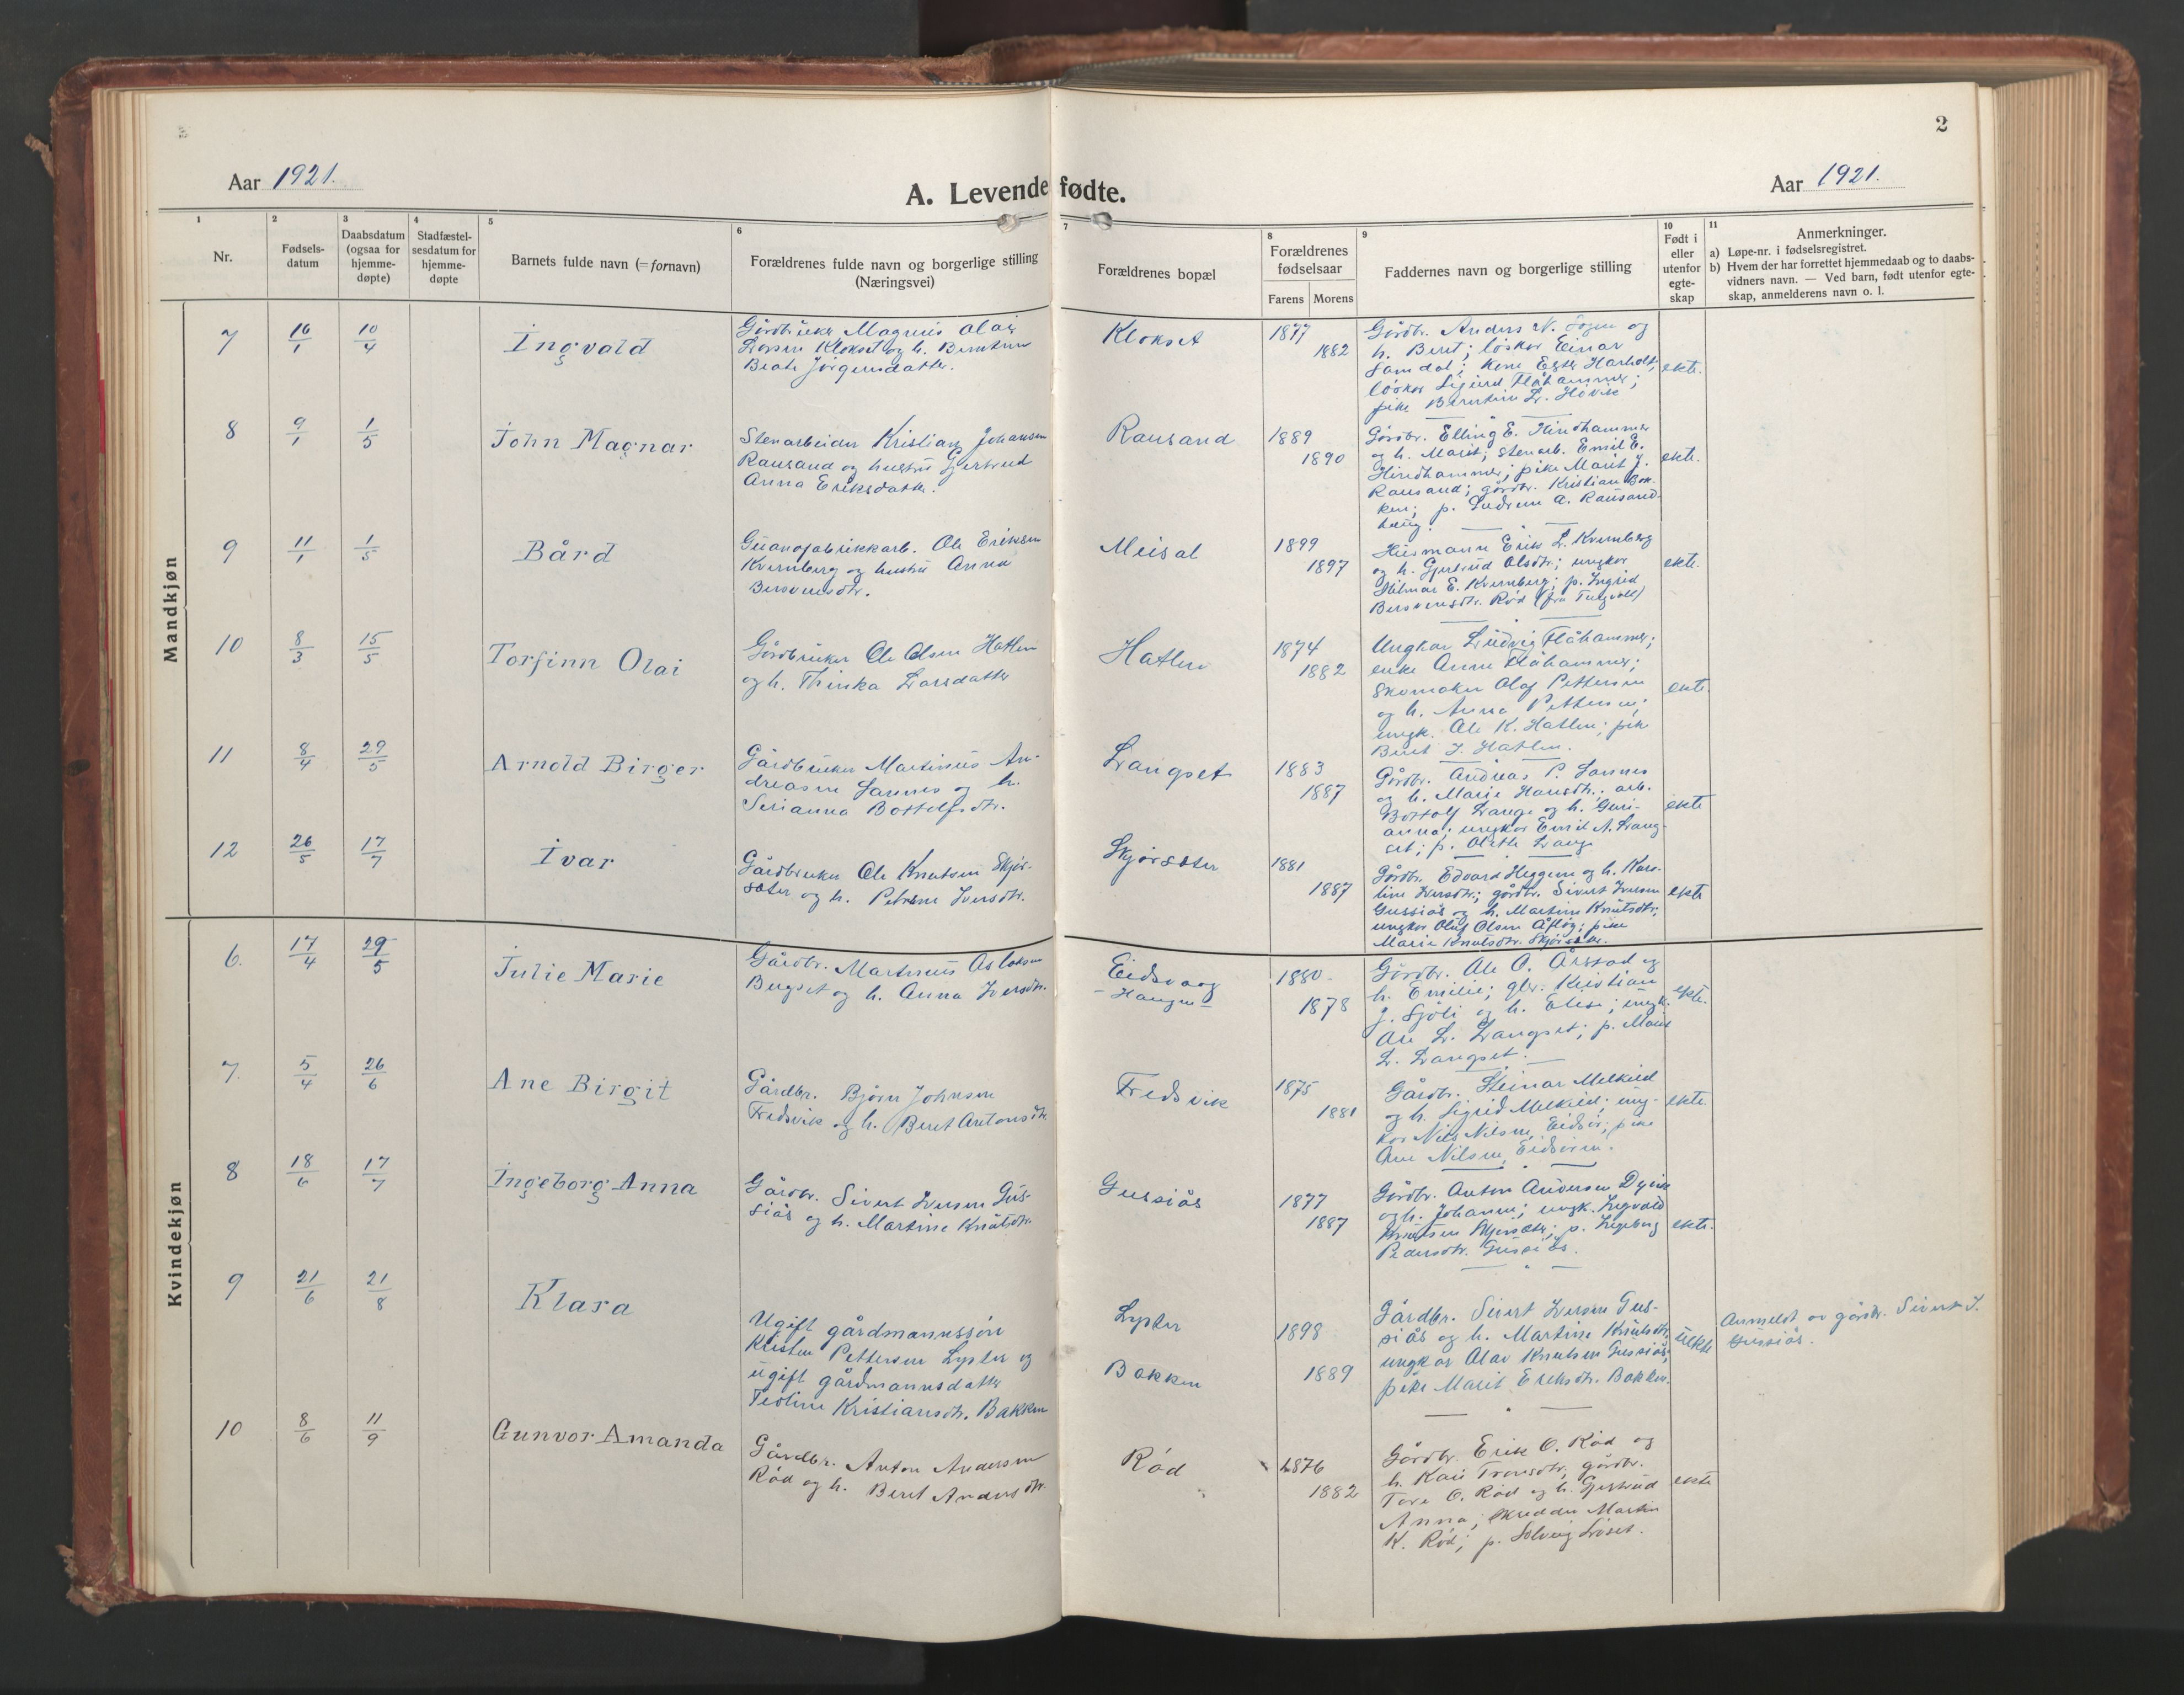 2
Aar 1921.
A. Levende fødte.
Aar 1921.
1
2
3
4
5
6
7
8
9
10
11
Nr.
Fødsels-
datum
Daabsdatum
(ogsaa for
hjemme-
døpte)
Stadfæstel-
sesdatum for
hjemme-
døpte
Barnets fulde navn (= fornavn)
Forældrenes fulde navn og borgerlige stilling
(Næringsvei)
Forældrenes bopæl
Forældrenes
fødselsaar
Farens Morens
Faddernes navn og borgerlige stilling
Født i
eller
utenfor
egte-
skap
Anmerkninger.
a) Løpe-nr. i fødselsregistret.
b) Hvem der har forrettet hjemmedaab og to daabs-
vidners navn. — Ved barn, født utenfor egte-
skap, anmelderens navn o. l.
Mandkjøn
7
16/1
10/4
Ingvald
Gårdbruker Magnus Olai
Larsen Klokset og h. Berntine
Beate Jørgensdatter.
Klokset
1877
1882
Gårdbr. Anders N.
og
h. Beret; løskar Einar
løskar Sigurd Flåhammer;
pike Berntine L. Hovik
ekte.
8
9/1
1/5
John Magnar
Stenarbeider Kristian Johansen
Rausand og hustru Gjertrud
Anna Eriksdatter.
Rausand
1889
1890
Gårdbr. Elling E. Hindhammer
og h. Marit; stenarb. Emil E.
Hindhammer; pike Marit J.
Rausand; gårdbr. Kristian Bak-
ken; p. Gudrun A. Rausand-
haug.
ekte.
9
11/1
1/5
Bård
Guanofabrikkarb. Ole Eriksen
Kvernberg og hustru Anna
Bersvensdtr.
Meisal
1899
1897
Husmann Erik L. Kvernberg
og h. Gjertrud Olsdtr; ungkar
Hilmar E. Kvernberg; p. Ingrid
Bersvensdtr. Rød (fra Tingvoll)
ekte.
10
8/3
15/5
Torfinn Olai
Gårdbruker Ole Olsen Hatlen
og h. Thinka Larsdatter
Hatlen
1874
1882
Ungkar Ludvig Flåhammer;
enke Anne Flåhammer;
Skomaker Olaf Pettersen
og h. Anna Pettersen;
ungk. Ole K. Hatlen; pike
Beret J. Hatlen.
ekte.
11
8/4
29/5
Arnold Birger
Gårdbruker Martinus An-
dreasen Sannes og h.
Serianna Bottolfsdtr.
Langset
1883
1887
Gårdbr. Andreas P. Sannes
og h. Marie Hansdtr.; arb.
Bottolf Lange og h. Guri-
anna; ungkar Emil A. Lang-
set; p. Olette Lange
ekte
12
26/5
17/7
Ivar
Gårdbruker Ole Knutsen Skjør-
sæter og h. Petrine Iversdtr.
Skjørsæter
1881
1887
Gårdbr. Edvard Heggem og h. Karo-
line Iversdtr; gårdbr. Sivert Iversen
Gussiås og h. Martine Knutsdtr;
ungkar Oluf Olsen Åfløy; pike
Marie Knutsdtr. Skjørsæter.
ekte
Kvindekjøn
6.
17/4
29/5
Julie Marie
Gårdbr. Martinus Aslaksen
Bugset og h. Anna Iversdtr.
Eidsvaag
- Haugen -
1880
1878
Gårdbr. Ole O. Årstad og
h. Emilie; gbr. Kristian
J. Sjøli og h. Elise; ungk.
Ole L. Langset; p. Marit
L. Langset.
ekte.
7.
5/4
26/6
Ane Birgit
Gårdbr. Bjørn Johnsen
Fredsvik og h. Beret Antonsdtr.
Fredsvik
1875
1881
Gårdbr. Steinar Melkild
og h. Sigrid Melkild; ung-
kar Nils Nilsen, Eidsør; pike
Ane Nilsen, Eidsøren.
ekte.
8
18/6
17/7
Ingeborg Anna
Gårdbr. Sivert Iversen Gus-
siås og h. Martine Knutsdtr.
Gussiås
1877
1887
Gårdbr. Anton Andersen
og h. Johanne; ungk. Ingvald
Knutsen Skjørsæter; p. Ingeborg
Pedersdtr. Gussiås.
ekte.
9
21/6
21/8
Klara
Ugift gårdmannssøn
Kristen Pettersen Lyster og
ugift gårdmannsdatter
Teoline Kristiansdtr. Bakken
Lyster
Bakken
1898
1889
Gårdbr. Sivert Iversen Gus-
siås og h. Martine Knutsdtr.
ungkar Olav Knutsen Gussiås;
pike Marit Eriksdtr. Bakken.
uekte
Anmeldt av gårdbr. Sivert I.
Gussiås.
10
8/6
11/9
Gunvor Amanda
Gårdbr. Anton Andersen
Rød og h. Beret Andersdtr.
Rød
1876
1882
Gårdbr. Erik O. Rød og
h. Kari Tronsdtr, gårdbr.
Tore O. Rød og h. Gjertrud
Anna; skredder Martin
K. Rød; p. Solveig Liset.
ekte